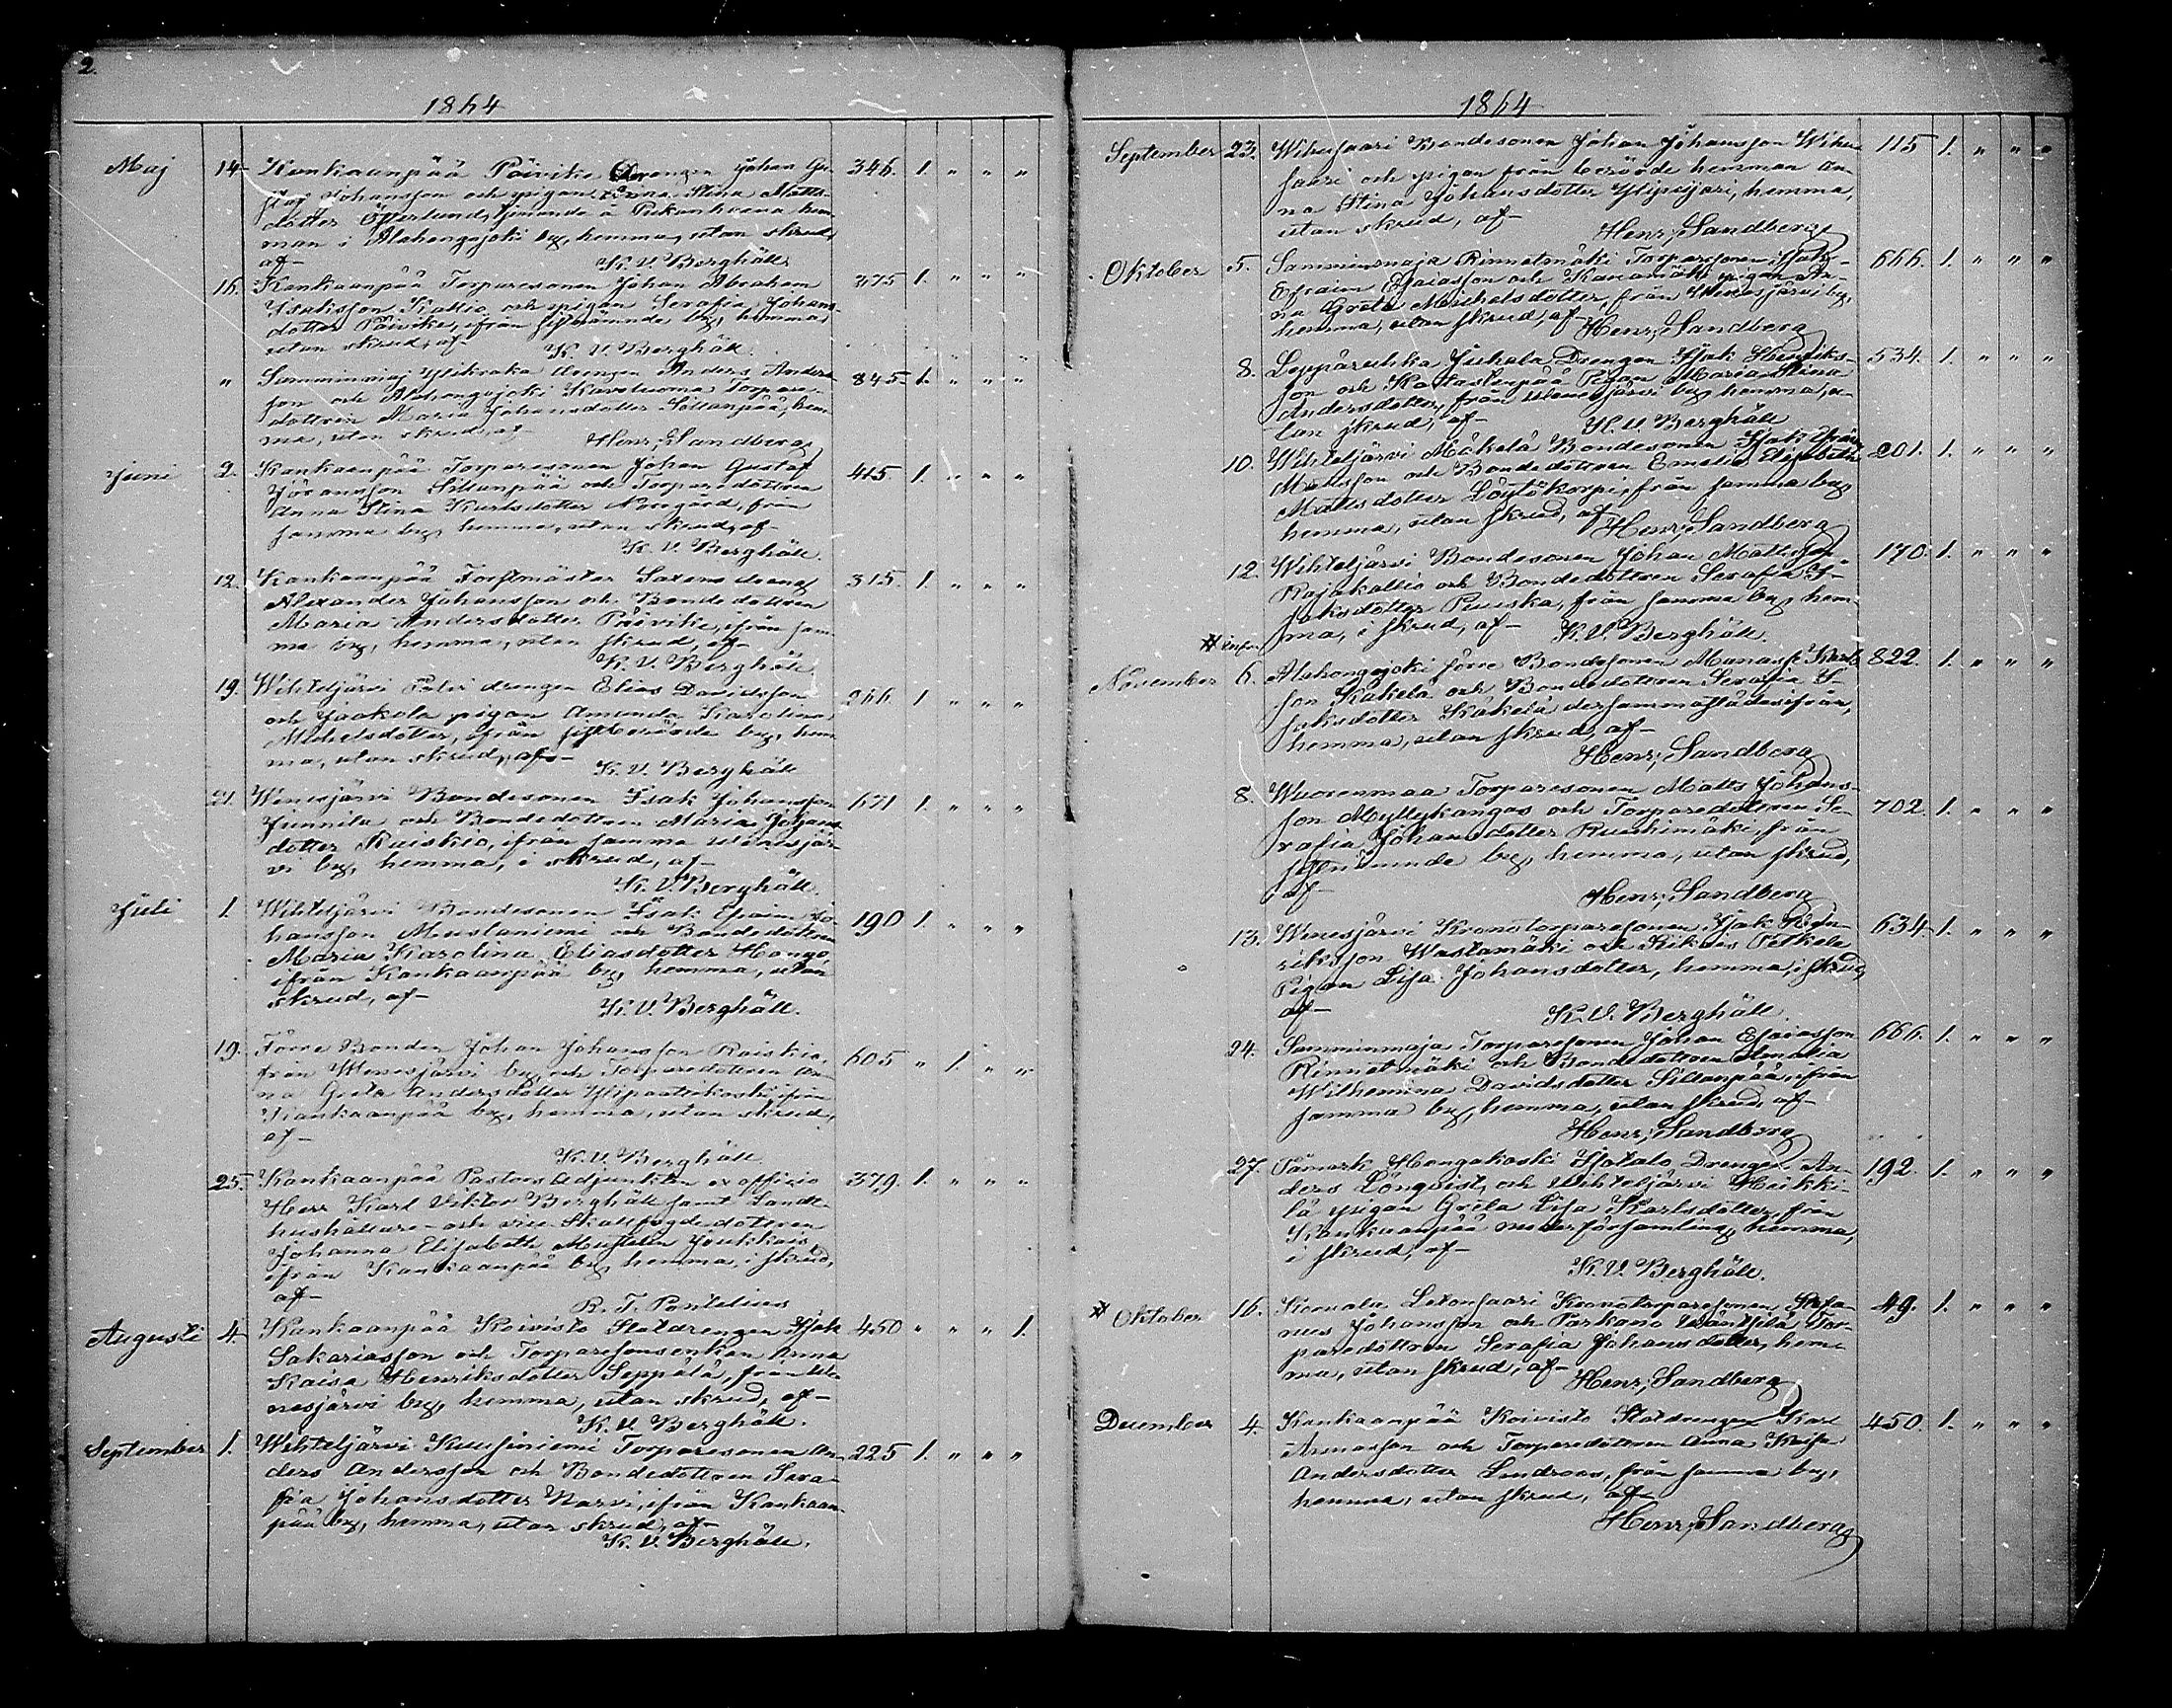 2.
1864
Maj 14 Kankaanpää Päivike Drengen Johan Gu-
staf Johansson och pigan Anna Stina Matts-
dotter Österlund, tjenande å Pukanhaara hem-
man i Alahongojoki by, hemma, utan skrud, 346. 1. " " "
af- K. V. Berghäll
16. Kankaanpää Torparesonen Johan Abraham 375 1. " " "
Isaksson Kallio och pigan Serafia Johans-
dotter Päivike, ifrån sistnämnde by, hemma,
utan skrud, af K. V. Berghäll.
" Samminmaj Ylikraka drengen Anders Anders- 845. 1. " " "
son och Alahongojoki Torpare-
dottren Maria Johansdotter Sillanpää, hem-
ma, utan skrud, af- Henr; Sandberg
Juni 2. Kankaanpää Torparesonen Johan Gustaf 415. 1. " " "
Göransson Sillanpää och Torparedottren
Anna Stina Karlsdotter Norrgård, från
samma by, hemma, utan skrud, af-
K. V. Berghäll.
12. Kankaanpää Forstmästar Saxens dreng 315. 1. " " "
Alexander Johansson och Bondedottren
Maria Andersdotter Päivike, ifrån sam-
ma by, hemma, utan skrud, af-
K. V. Berghäll
19. Wihteljärvi Palvi drengen Elias Davidsson 266. 1 " " "
och Jaakola pigan Amanda Karolina
Michelsdotter, ifrån sistberörde by, hem-
ma, utan skrud, af-
K. V. Berghäll
21. Wenesjärvi Bondesonen Isak Johansson 671 1. " " "
Junnila och Bondedottren Maria Johans-
dotter Ruiskio, ifrån samma Wenesjär-
vi by, hemma, i skrud, af-
K. V. Berghäll.
Juli 1. Wihteljärvi Bondesonen Isak Efraim Jo- 190 1. " " "
hansson Mustaniemi och Bondedottren
Maria Karolina Eliasdotter Hongo,
ifrån Kankaanpää by, hemma, utan
skrud, af- K. V. Berghäll.
19. Förre Bonden Johan Johansson Raiskio, 605 " 1. " "
från Wenesjärvi by, och Torparedottren An-
na Greta Andersdotter Ylipaatikoski, ifrån
Kankaanpää by, hemma, utan skrud,
af-
K. V. Berghäll
25. Kankaanpää Pastors Adjunkten ex officio 379. 1. " " "
Herr Karl Viktor Berghäll samt Landt-
hushållare- och vice Skallfogdedottren
Johanna Elisabeth Mustelin Joukkais,
ifrån Kankaanpää by, hemma, i skrud,
af- R. T. Pontelius
Augusti 4. Kankaanpää Koivisto Statdrengen Isak 450 " " " 1.
Sakariasson och Torparesonsenkan Anna
Kaisa Henriksdotter Seppälä, från We-
nesjärvi by, hemma, utan skrud, af-
K. V. Berghäll.
September 1. Wihteljärvi Kuusiniemi Torparesonen An- 225 1. " " "
ders Andersson och Bondedottren Sera-
fia Johansdotter Narvi, ifrån Kankaan-
pää by, hemma, utan skrud, af-
K. V. Berghäll.
1864
September 23. Wihusaari Bondesonen Johan Johansson Wihu- 115 1. " " "
saari och pigan från berörde hemman An-
na Stina Johansdotter Ylipijari, hemma,
utan skrud, af- Henr; Sandberg
Oktober 5. Samminmaja Rinnetmäki Torparesonen Isak 666. 1. " " "
Efraim Esaiasson och Kanamäki pigan An-
na Greta Michelsdotter, från Wenesjärvi by,
hemma, utan skrud, af- Henr; Sandberg
8. Leppäruhka Juhala Drengen Isak Henriks- 534. 1. " " "
son och Pigan Maria Stina
Andersdotter, från Wenesjärvi by, hemma, u-
tan skrud, af- K. V. Berghäll
10. Wihteljärvi Mäkelä Bondesonen Isak Efraim 201. 1. " " "
Mattsson och Bondedottren Emelie Elisabeth
Mattsdotter Löytökorpi, från samma by,
hemma, utan skrud, af Henr; Sandberg
12. Wihteljärvi Bondesonen Johan Mattsson 170. 1. " " "
Rajakallio och Bondedottren Serafia I-
saksdotter Puuska, från samma by, hem-
ma, i skrud, af- K. V. Berghäll.
November 6. Alahongojoki förre Bondesonen Manasse Karls- 822. 1. " " "
son Käkelä och Bondedottren Serafia I-
saksdotter Käkelä dersammastädes ifrån,
hemma, utan skrud, af-
Henr; Sandberg
8. Wuorenmaa Torparesonen Matts Johans- 702. 1. " " "
son Myllykangas och Torparedottren Se-
rafia Johansdotter Ruohimäki, från
sistnämnde by, hemma, utan skrud,
af- Henr; Sandberg
13. Wenesjärvi Kronotorparesonen Isak Hen- 634. 1. " " "
riksson Wastamäki och Kikas Petkele
Pigan Lisa Johansdotter, hemma, i skrud,
af- K. V. Berghäll.
24. Samminmaja Torparesonen Johan Esaiasson 666. 1. " " "
Rinnetmäki och Bondedottren Amalia
Wilhemina Davidsdotter Sillanpää, ifrån
samma by, hemma, utan skrud, af-
Henr; Sandberg
27. Påmark Hongakoski Isotalo Drengen An- 192. 1. " " "
ders Lönqvist, och Wihteljärvi Heikki-
lä pigan Greta Lisa Karlsdotter, från
Kankaanpää moderförsamling, hemma,
i skrud, af-
K. V. Berghäll.
# Oktober 16. Letonsaari Kronotorparesonen Stefa- 49. 1. " " "
nus Johansson och Parkano Tor-
paredottren Serafia Johansdotter, hem-
ma, utan skrud, af- Henr; Sandberg
December 4. Kankaanpää Koivisto Statdrengen Karl 450. 1. " " "
och Torparedottren Anna Kaisa
Andersdotter Lindroos, från samma by,
hemma, utan skrud, af-
Henr; Sandberg